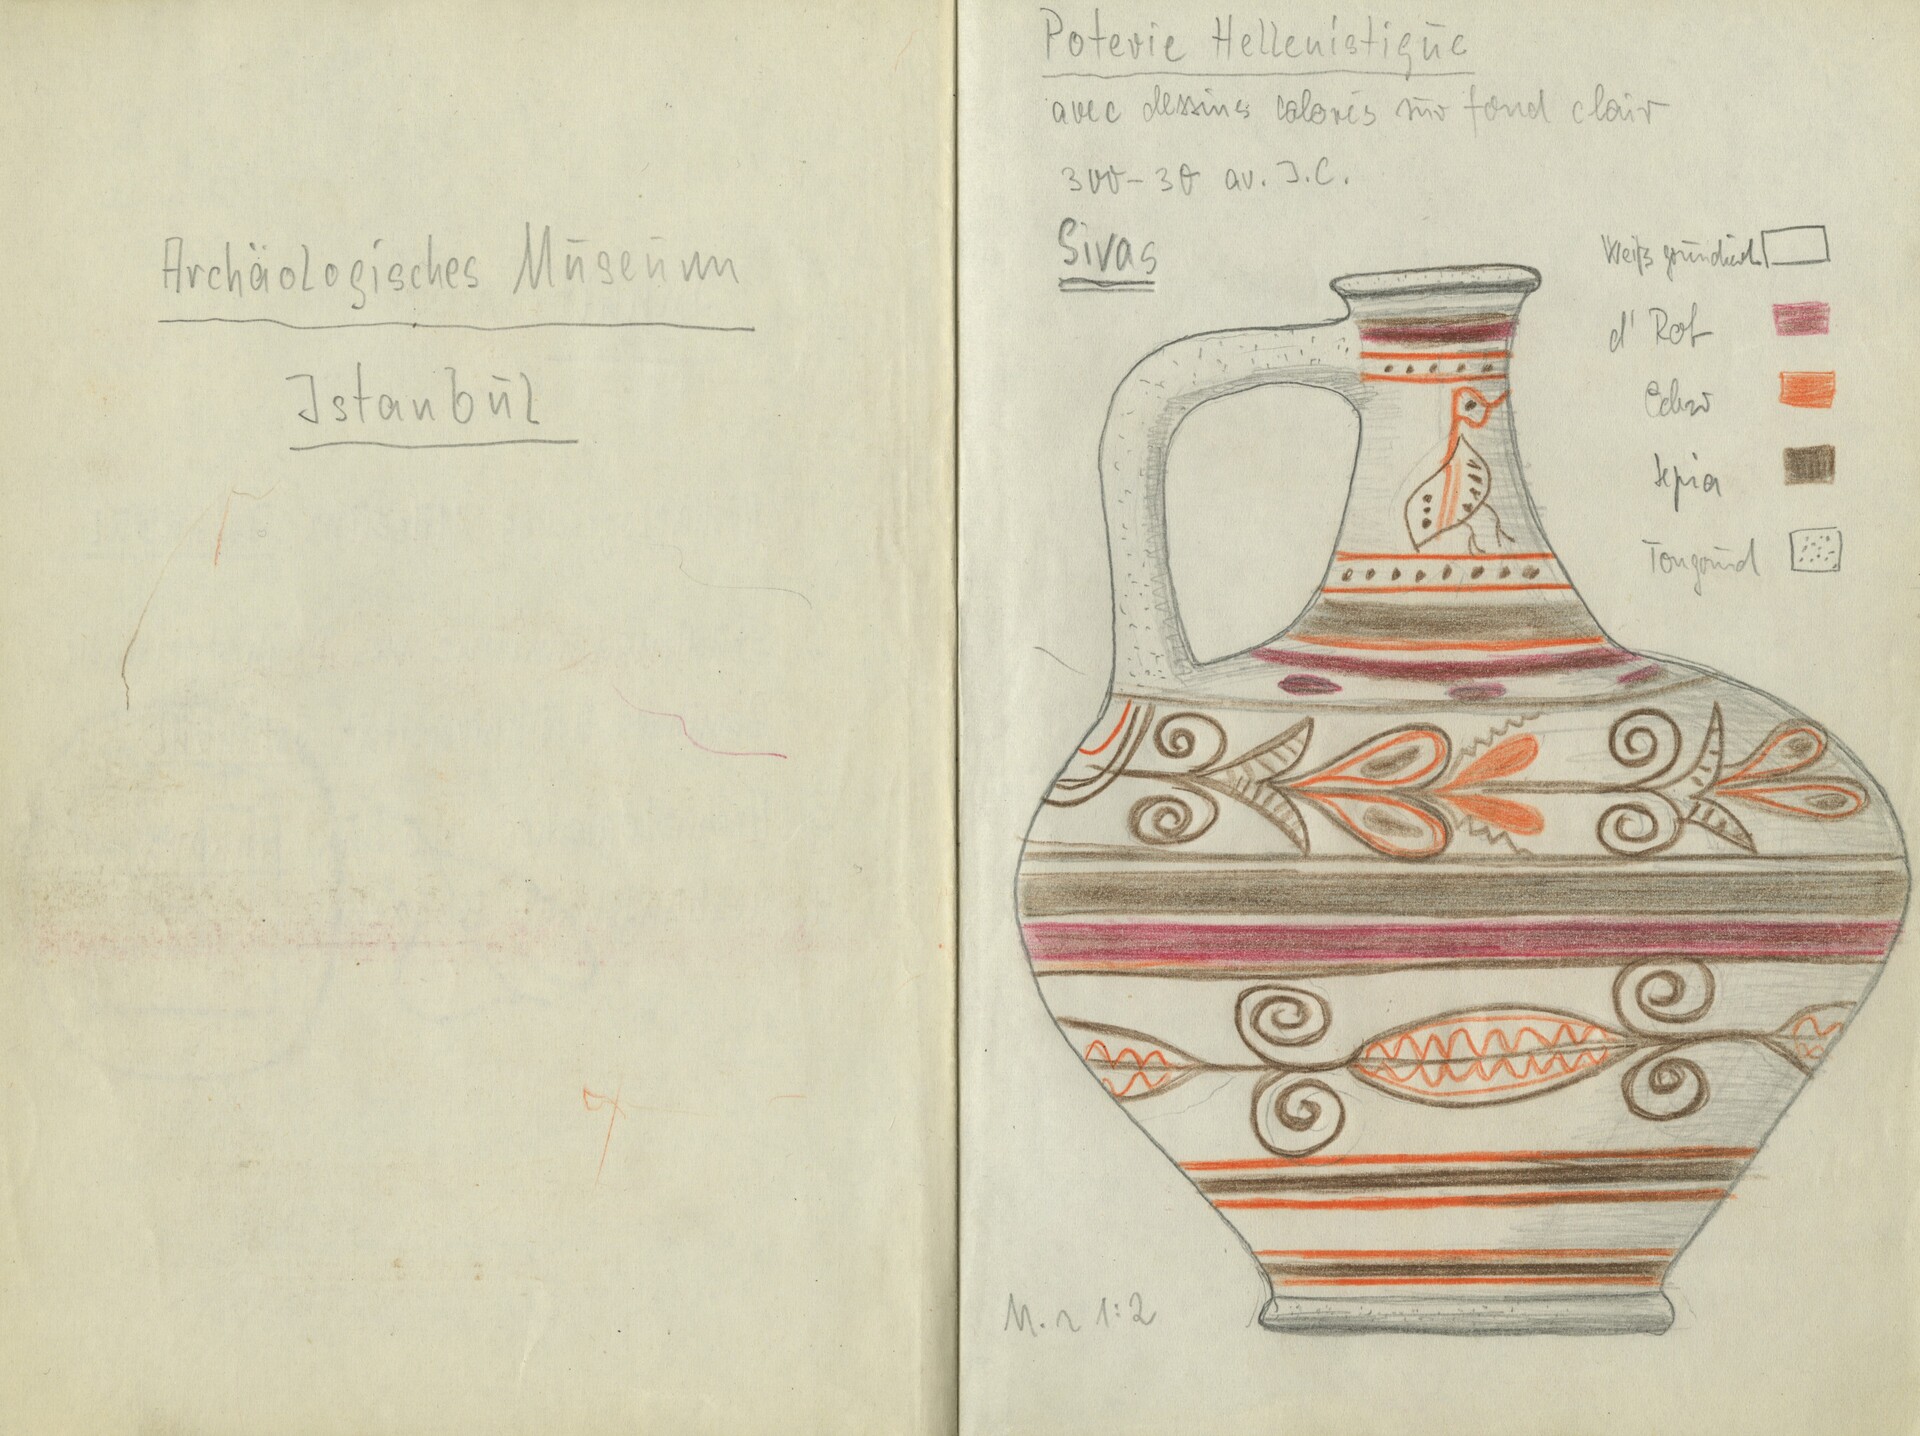 Archäologisches Museum
Istanbul
Poterie Hellenistique
avec dessins colorés sur fond clair
300-30 av. J.C.
Sivas
Weiß grundiert
d' Rot
Ocker
Sepia
Tongrund
M. ~ 1:2